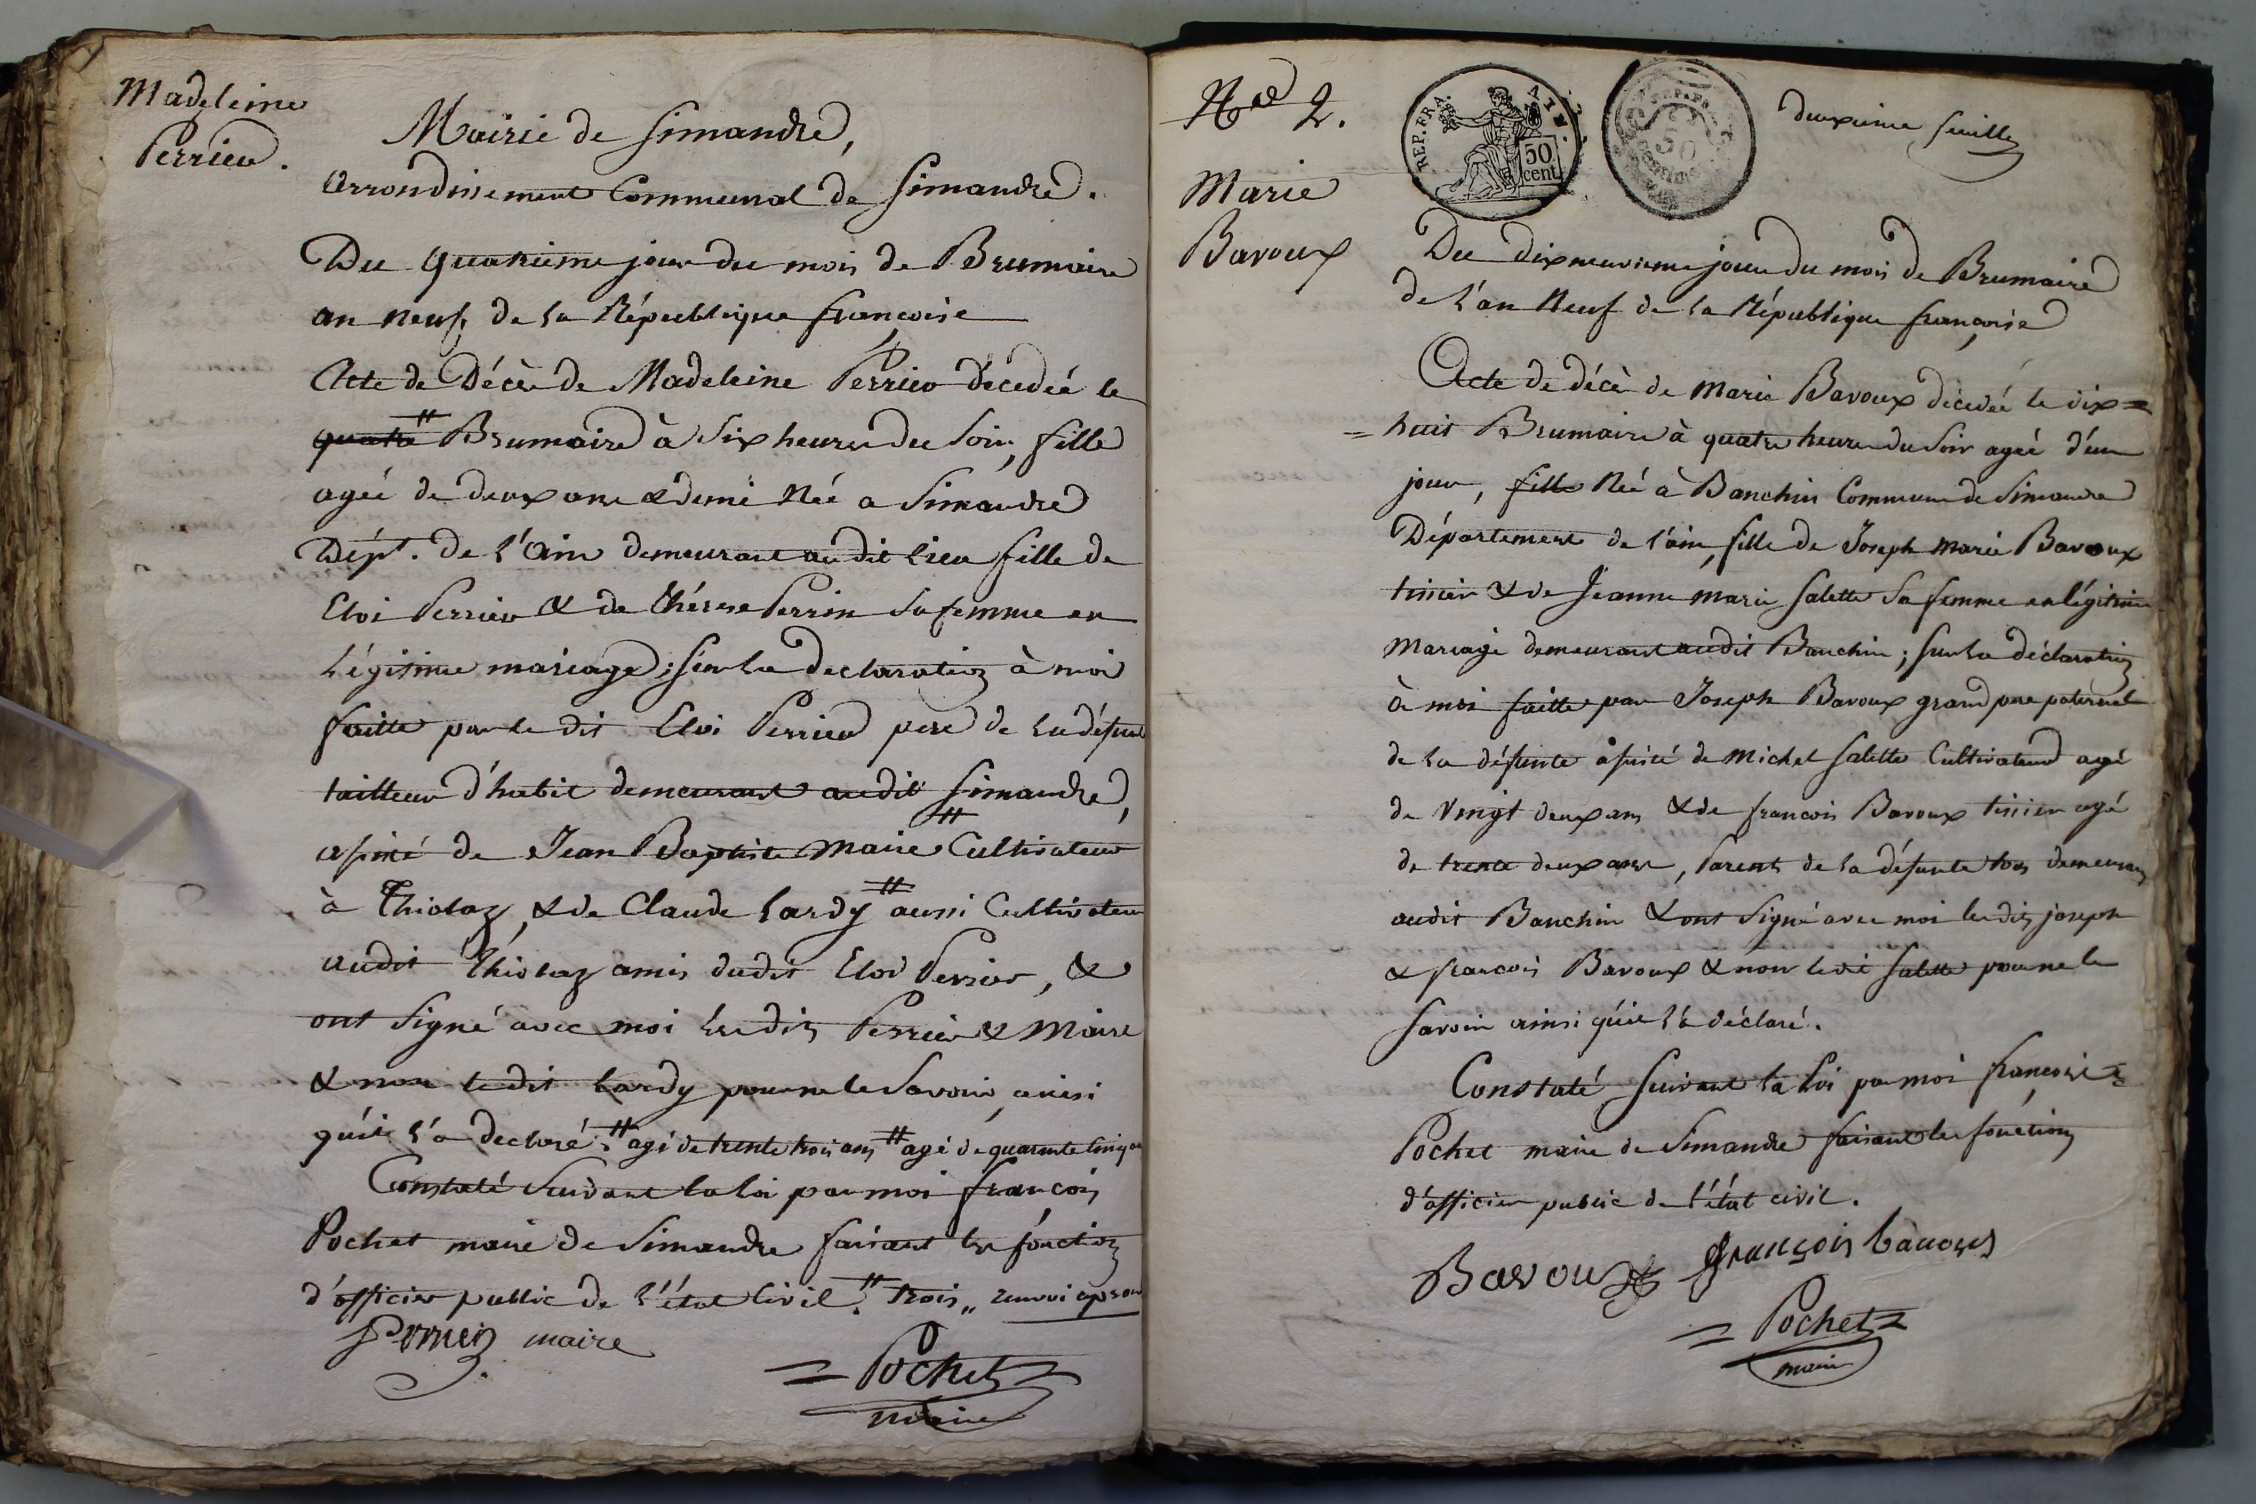 Madeleine
Perrier.
Mairie de Simandre,
Arrondissement Communal de Simandre.
Du quatrieme jour du mois de Brumaire
an neuf de la République françoise
Acte de Décès de Madeleine Perrier décedée le
quatre # Brumaire à six heures du soir, fille
agée de deux ans & demi Née a Simandre
Dépt. de l'Ain demeurant au dit lieu fille de
Eloi Perrier & de Thérese Perrin sa femme en
légitime mariage; sur la declaration à moi
faitte par le dit Eloi Perrier pere de la défunte
tailleur d'habit demeurant audit Simandre,
assisté de Jean Baptiste Maire # Cultivateur
à Thiolaz, & de Claude Lardy # aussi Cultivateur
audit Thiolaz amis dudit Eloi Perrier, &
ont signé avec moi les dits Perrier & Maire
& non ledit Lardy pour ne le savoir, ainsi
qu'il l'a declaré. # agé de trente trois ans # agé de quarante cinq ans
Constaté suivant la loi par moi françois
Pochet maire de Simandre faisant les fonctions
d'officier public de l'état Civil. # trois,, renvoi
Perrier maire
= Pochet =
maire
2.
REP. FRA.
50
cent.
50
deuxieme feuille
Marie
Bavoux
Du dixneuvieme jour du mois de Brumaire
de l'an Neuf de la République françoise
Acte de décè de Marie Bavoux décedée le dix=
=huit Brumaire à quatre heures du soir agée d'un
jour, fille Née à Banchin Commune de Simandre
Département de l'ain, fille de Joseph Marie Bavoux
tissier & de Jeanne Marie Salette sa femme en légitime
Mariage demeurant audit Banchin; sur la déclaration
à moi faitte par Joseph Bavoux grand pere paternel
de la défunte assisté de Michel Salette Cultivateur agé
de Vingt deux ans & de françois Bavoux tissier agé
de trente deux ans, Parents de la défunte tous demeurants
audit Banchin & ont signé avec moi les dits joseph
& françois Bavoux & non le dit Salette pour ne le
savoir ainsi qu'il l'a déclaré.
Constaté suivant la Loi par moi françois =
Pochet maire de Simandre faisant les fonctions
d'officier public de l'état civil.
Bavoux françois bavoux
= Pochet =
maire